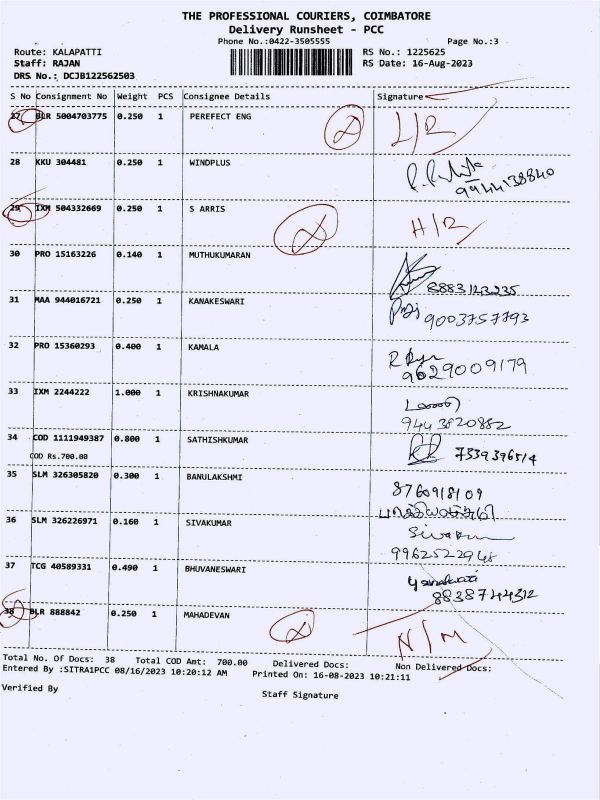 THE PROFESSIONAL COURIERS, COIMBATORE
Delivery Runsheet - PCC
Phone No.:0422-3505555 Page No.:3
Route: KALAPATTI RS No.: 1225625
Staff: RAJAN RS Date: 16-Aug-2023
DRS No.: DCJB122562503
S No Consignment No Weight PCS Consignee Details Signature
27 BLR 5004703775 0.250 1 PEREFECT ENG L/R
28 KKU 304481 0.250 1 WINDPLUS
9944138840
29 IXM 504332669 0.250 1 S ARRIS H/R
30 PRO 15163226 0.140 1 MUTHUKUMARAN
8883123235
31 MAA 944016721 0.250 1 KANAKESWARI
9003757793
32 PRO 15360293 0.400 1 KAMALA
9629009179
33 IXM 2244222 1.000 1 KRISHNAKUMAR
9443820882
34 COD 1111949387 0.800 1 SATHISHKUMAR 7339396514
COD Rs.700.00
35 SLM 326305820 0.300 1 BANULAKSHMI
8760918109
36 SLM 326226971 0.160 1 SIVAKUMAR
9962522948
37 TCG 40589331 0.490 1 BHUVANESWARI
8838744312
38 BLR 888842 0.250 1 MAHADEVAN N/M
Total No. Of Docs: 38 Total COD Amt: 700.00 Delivered Docs: Non Delivered Docs:
Entered By :SITRA1PCC 08/16/2023 10:20:12 AM Printed On: 16-08-2023 10:21:11
Verified By Staff Signature